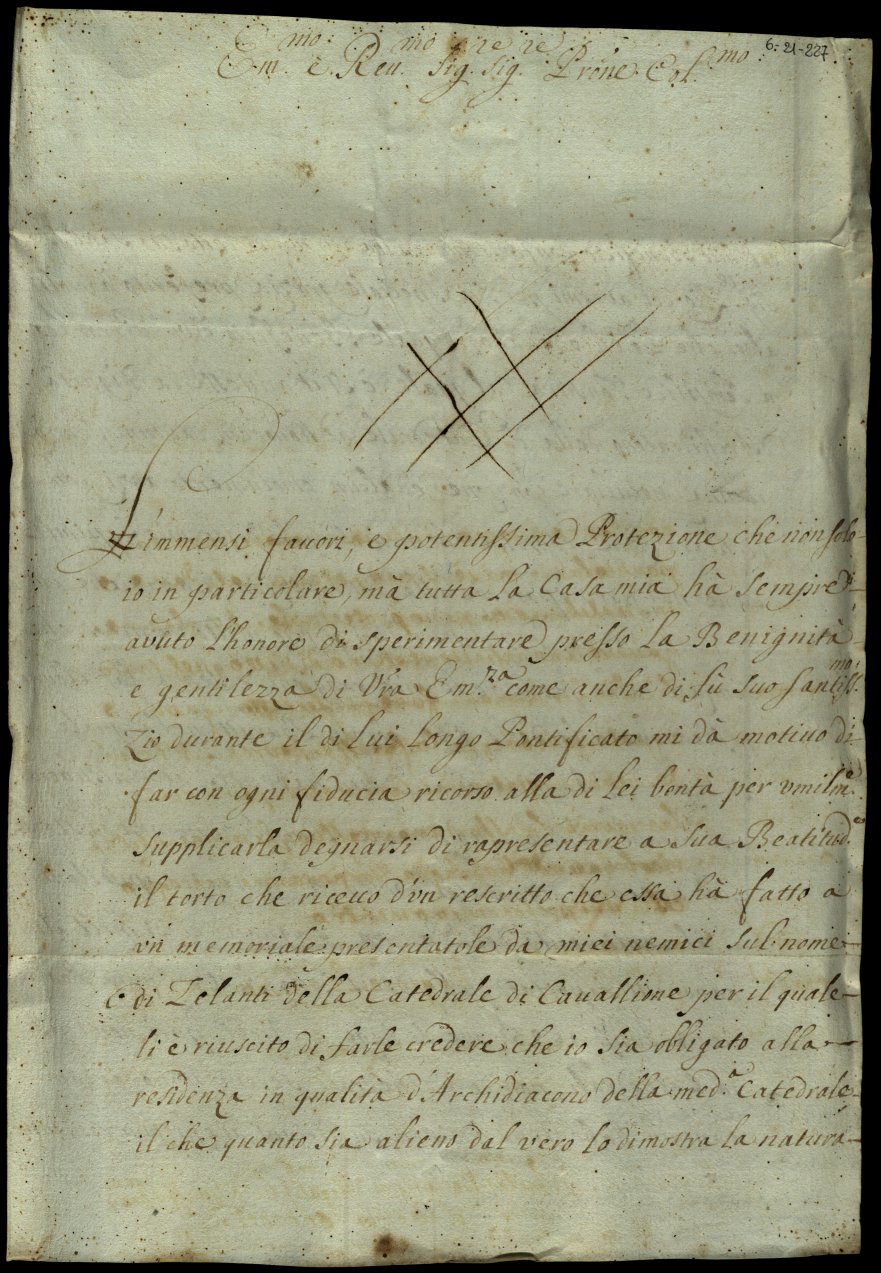 6-21-227
Em.mo e Reu.mo Sig.re Sig.re Prone Col.mo
L'immensi fauori, e potentissima Protezione che non solo
io in particolare, mà tutta la Casa mia hà sempre
avuto l'honore di sperimentare presso la Benignità
e gentilezza di Vra Em.za come anche di sù suo santiss.mo
Zio durante il di lui longo Pontificato mi dà motiuo di
far con ogni fiducia ricorso alla di lei bontà per vmilm.e
supplicarla degnarsi di rapresentare a sua Beatitud.e
il torto che riceuo d'vn rescritto che essa hà fatto a
vn memoriale presentatole da miei nemici sul nome
di Zelanti della Catedrale di Cauallione per il quale
li è riuscito di farle credere che io sia obligato alla
residenza in qualità d'Archidiacono della med.a Catedrale
il che quanto sia alieno dal vero lo dimostra la natura